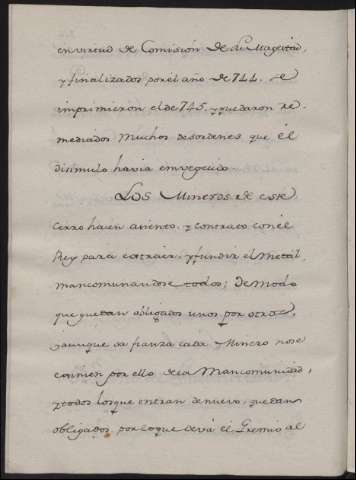 en virtud de Comisión de Su Magestad,
y finalizados por el año de 744. se
imprimieron el de 745. y quedaron re
mediados muchos desordenes que el
disimulo havia envegecido
Los Mineros de este
Cerro hacen asiento, y contrato con el
Rey para extraer, y fundir el Metal,
mancomunandose todos; de modo
que quedan obligados unos por otros,
y aunque da fianza cada Minero no se
eximen por ello de la Mancomunidad,
y todos los que entran de nuevo, quedan
obligados por lo que devia el Gremio al